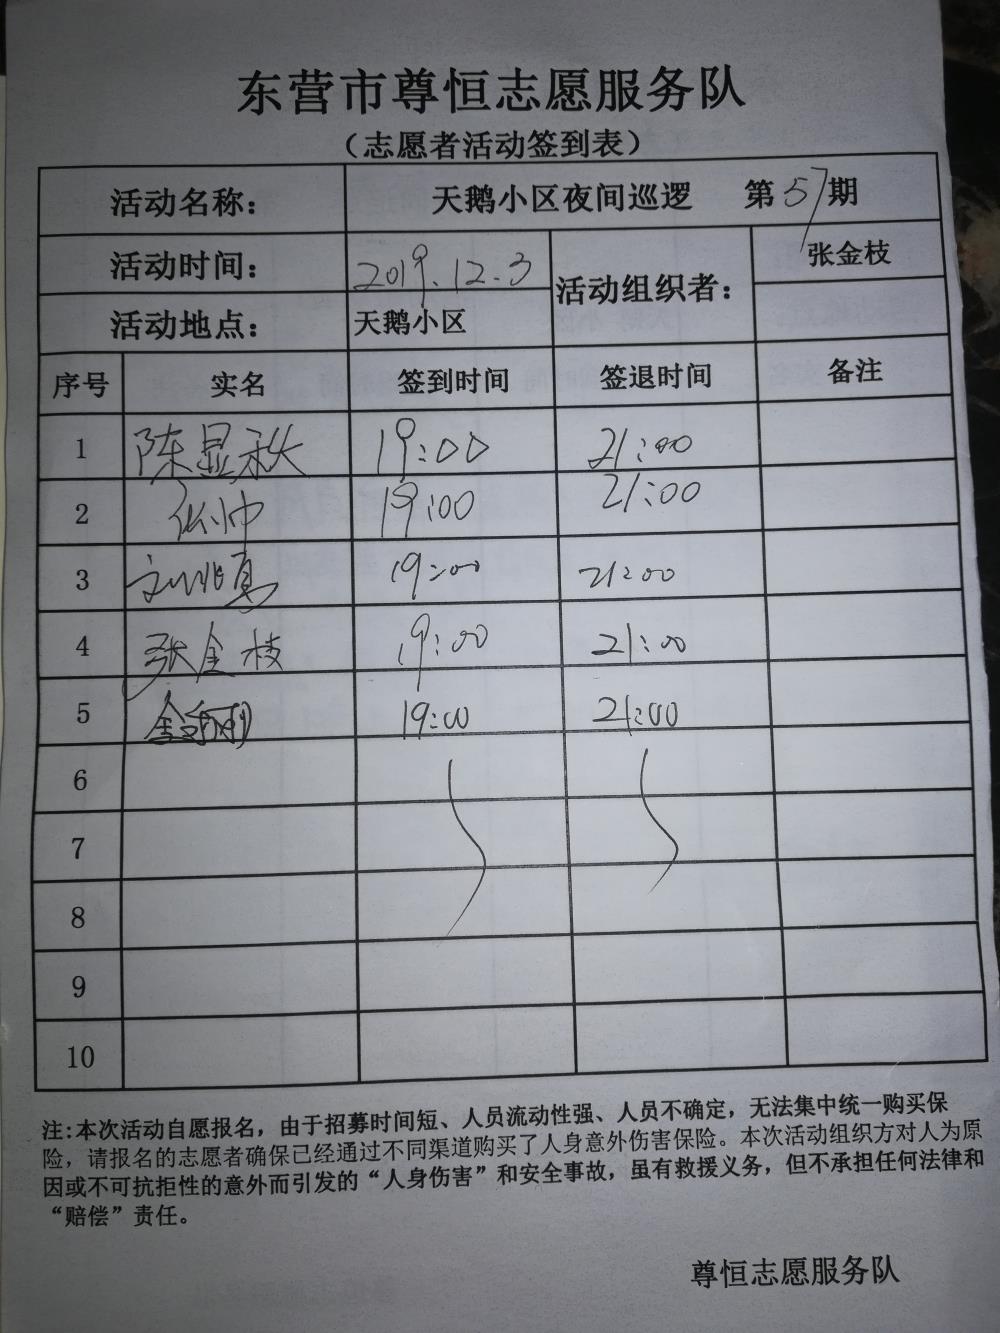 东营市尊恒志愿服务队
（志愿者活动签到表）
活动名称： 天鹅小区夜间巡逻 第57期
活动时间： 2019.12.3 活动组织者： 张金枝
活动地点： 天鹅小区
序号 实名 签到时间 签退时间 备注
1 陈显秋 19:00 21:00
2 张帅 19:00 21:00
3 19:00 21:00
4 张金枝 19:00 21:00
5 19:00 21:00
6
7
8
9
10
注:本次活动自愿报名，由于招募时间短、人员流动性强、人员不确定，无法集中统一购买保
险，请报名的志愿者确保已经通过不同渠道购买了人身意外伤害保险。本次活动组织方对人为原
因或不可抗拒性的意外而引发的“人身伤害”和安全事故，虽有救援义务，但不承担任何法律和
“赔偿”责任。
尊恒志愿服务队